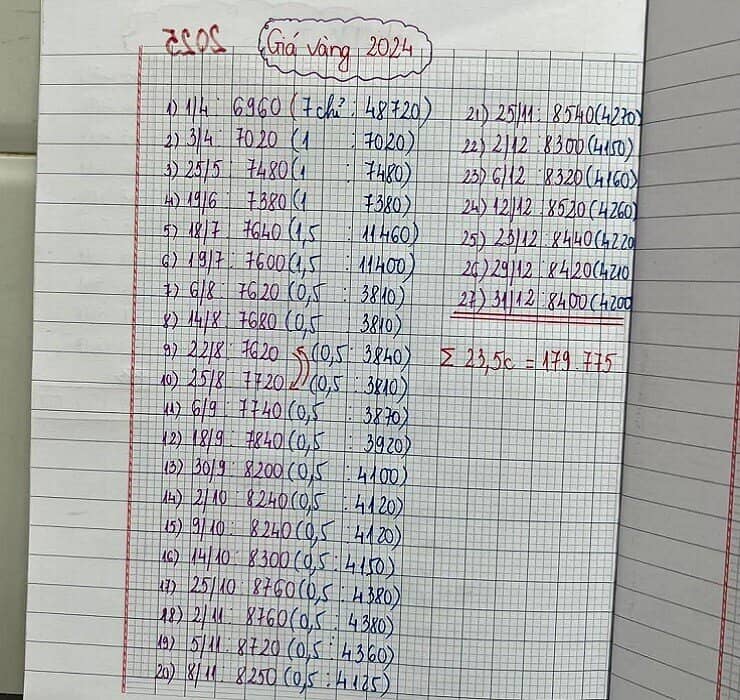 2025
Giá vàng 2024
1) 1/4 : 6960 (7 chỉ : 48720)
2) 3/4 : 7020 (1 : 7020)
3) 25/5 : 7480 (1 : 7480)
4) 19/6 : 7380 (1 7380)
5) 18/7 : 7640 (1,5 : 11460)
6) 19/7 : 7600 (1,5 : 11400)
7) 6/8 : 7620 (0,5 : 3810)
8) 14/8 : 7680 (0,5 3810)
9) 22/8 : 7620 (0,5 : 3840)
10) 25/8 7720 (0,5 : 3810)
11) 6/9 : 7740 (0,5 : 3870)
12) 18/9 : 7840 (0,5 3920)
13) 30/9 : 8200 (0,5 : 4100)
14) 2/10 : 8240 (0,5 : 4120)
15) 9/10 : 8240 (0,5 : 4120)
16) 14/10 : 8300 (0,5 : 4150)
17) 25/10 : 8760 (0,5 : 4380)
18) 2/11 : 8760 (0,5 : 4380)
19) 5/11 : 8720 (0,5 : 4360)
20) 8/11 : 8250 (0,5 : 4125)
21) 25/11 : 8540 (4270)
22) 2/12 : 8300 (4150)
23) 6/12 : 8320 (4160)
24) 12/12 : 8520 (4260)
25) 23/12 : 8440 (4220
26) 29/12 : 8420 (4210
27) 31/12 : 8400 (4200
Σ 23,5c = 179.775